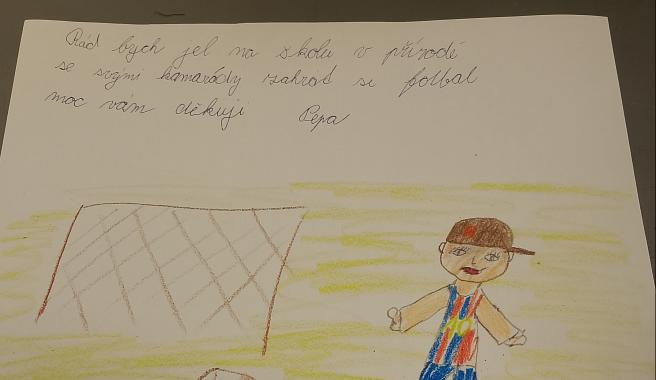 Rád bych jel na školu v přírodě
se svými kamarády zahrát si fotbal
moc vám děkuji Pepa
10